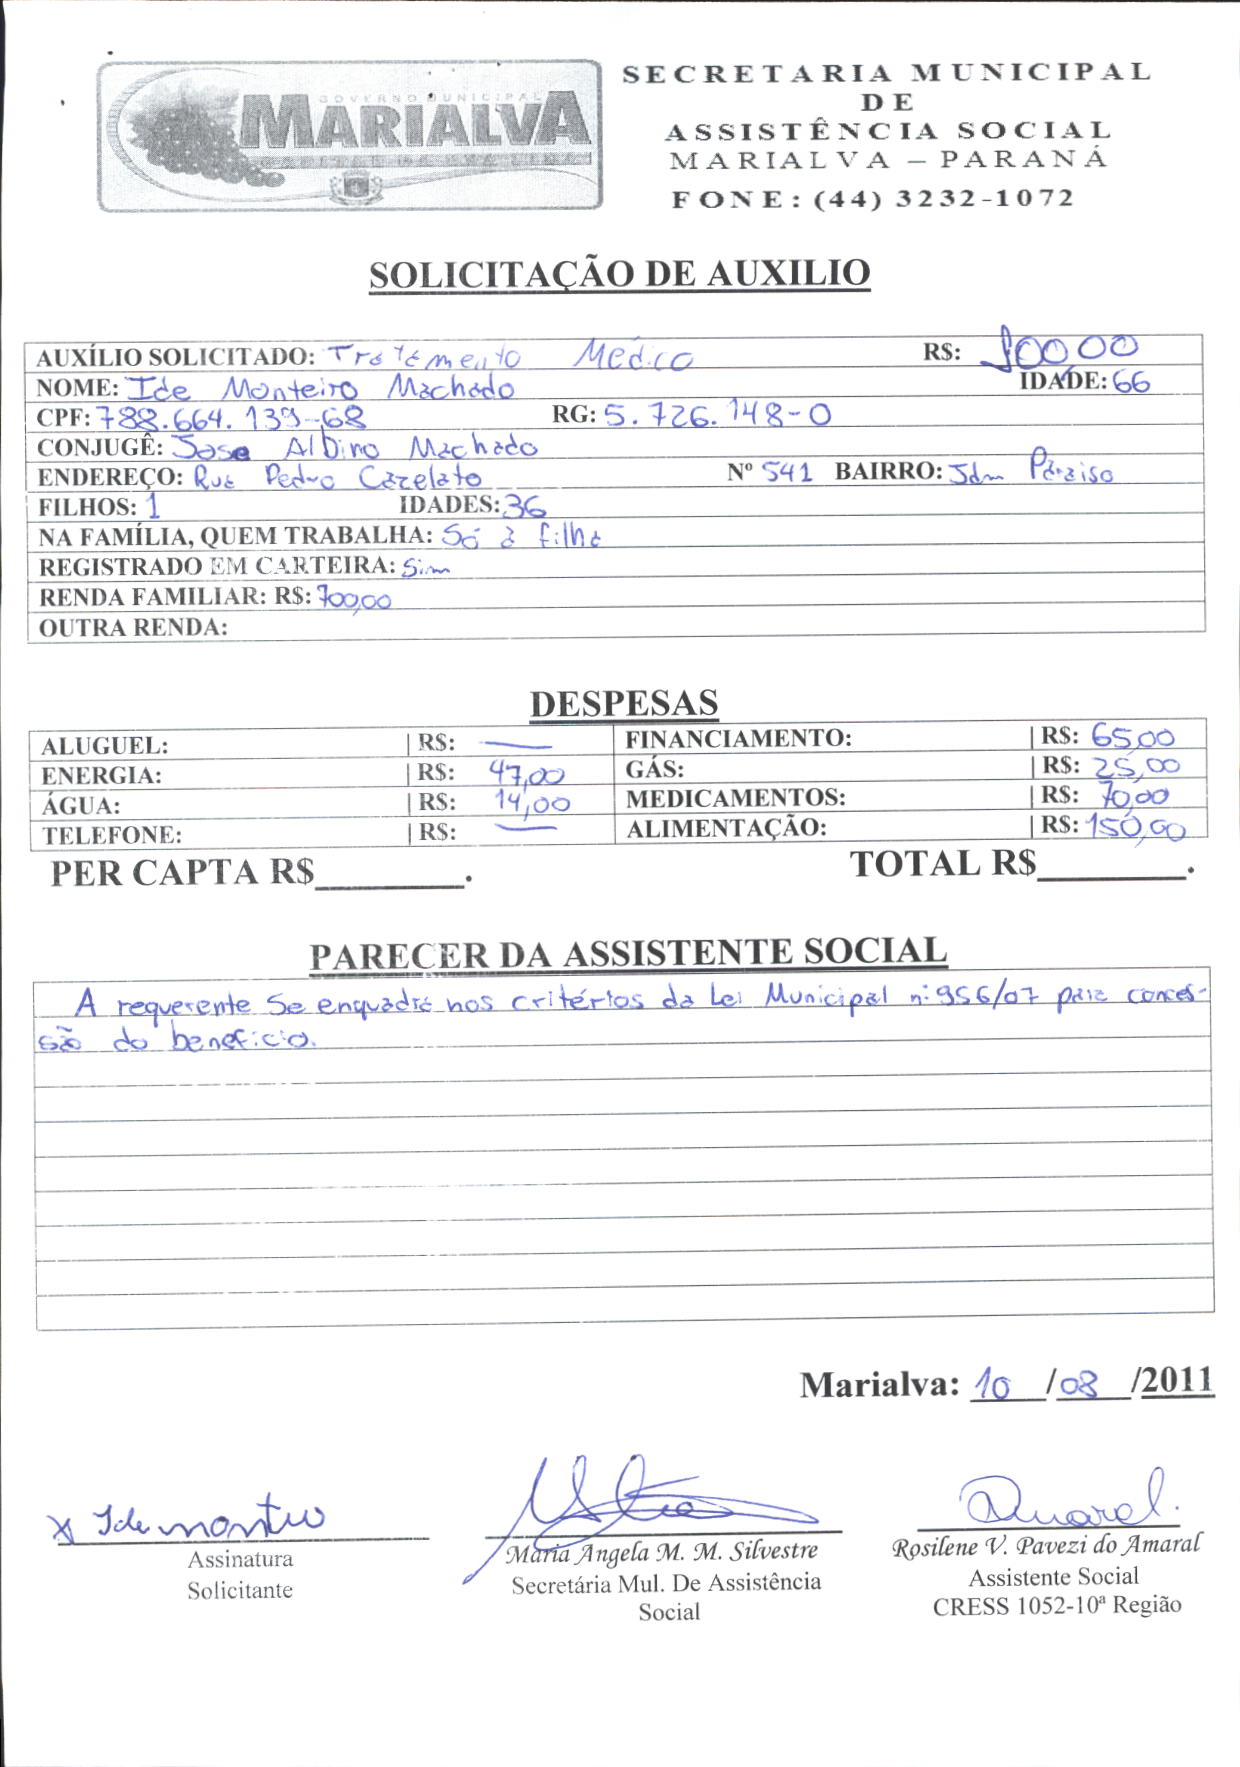 GOVERNO MUNICIPAL
MARIALVA
SECRETARIA MUNICIPAL
DE
ASSISTÊNCIA SOCIAL
MARIALVA – PARANÁ
FONE: (44) 3232-1072
SOLICITAÇÃO DE AUXILIO
AUXÍLIO SOLICITADO: Tratamento Médico R$: 00 00
NOME: Ide Monteiro Machado IDADE: 66
CPF: 788.664.139-68 RG: 5.726.148-0
CONJUGÊ: Jose Albino Machado
ENDEREÇO: Rua Pedro Cazelato Nº 541 BAIRRO: Jdm Paraiso
FILHOS: 1 IDADES: 36
NA FAMÍLIA, QUEM TRABALHA: Só a filha
REGISTRADO EM CARTEIRA: Sim
RENDA FAMILIAR: R$: 700,00
OUTRA RENDA:
DESPESAS
ALUGUEL: | R$: — FINANCIAMENTO: | R$: 65,00
ENERGIA: | R$: 47,00 GÁS: | R$: 25,00
ÁGUA: | R$: 14,00 MEDICAMENTOS: | R$: 70,00
TELEFONE: | R$: — ALIMENTAÇÃO: | R$: 150,00
PER CAPTA R$________. TOTAL R$________.
PARECER DA ASSISTENTE SOCIAL
A requerente se enquadra nos critérios da Lei Municipal nº 956/07 para conces-
são do benefício.
Marialva: 10 /08 /2011
x Ide montro
Amaral.
Assinatura
Solicitante
Maria Angela M. M. Silvestre
Secretária Mul. De Assistência
Social
Rosilene V. Pavezi do Amaral
Assistente Social
CRESS 1052-10ª Região